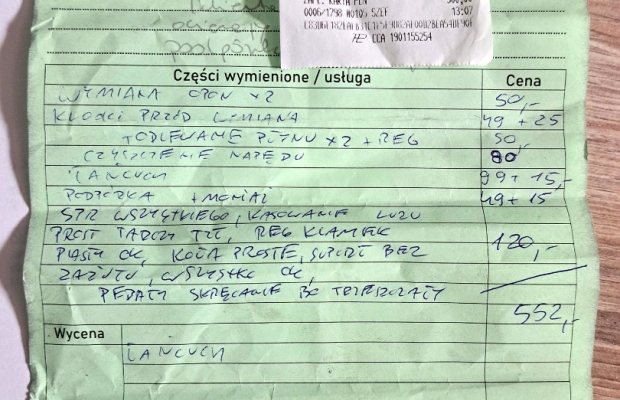 ZAPŁ. KARTA PLN
0006/1798 #0105 SZEF 13:07
CCA 1901155254
Części wymienione / usługa Cena
WYMIANA OPON x2 50,-
KLOCKI PRZÓD WYMIANA 49 + 25
+ODLEWANIE PŁYNU x2 + REG 50
CZYSZCZENIE NAPĘDU 80
ŁAŃCUCH 99 + 15,-
PODPÓRKA + MONTAŻ 49 + 15
KASOWANIE LUZU
PROST TARCZY REG KLAMEK
PIASTY OK, KOŁA PROSTE, SUPORT BEZ 120,-
WSZYSTKO OK,
PEDAŁY SKRĘCANIE BO
552,-
Wycena
ŁAŃCUCH